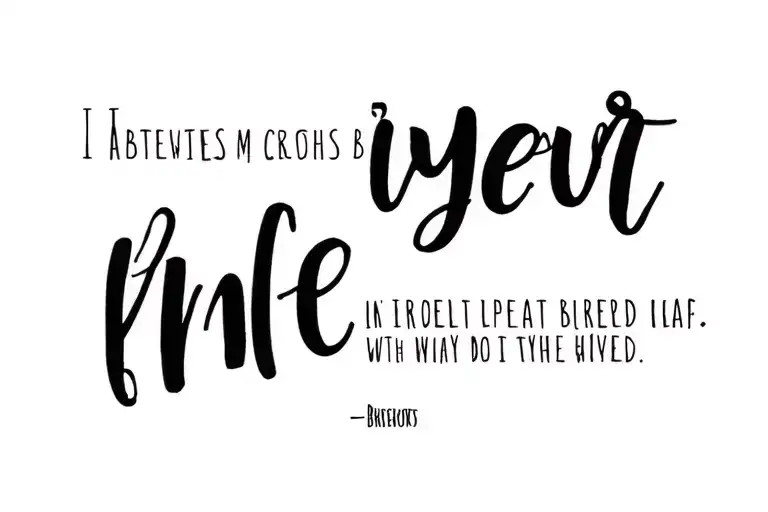 I ABTEWTES M CROHS B iyeur
fnfe
IN IROELT LPEAT BLREED ILAF.
WTH WIAY DO I TYHE HIVED.